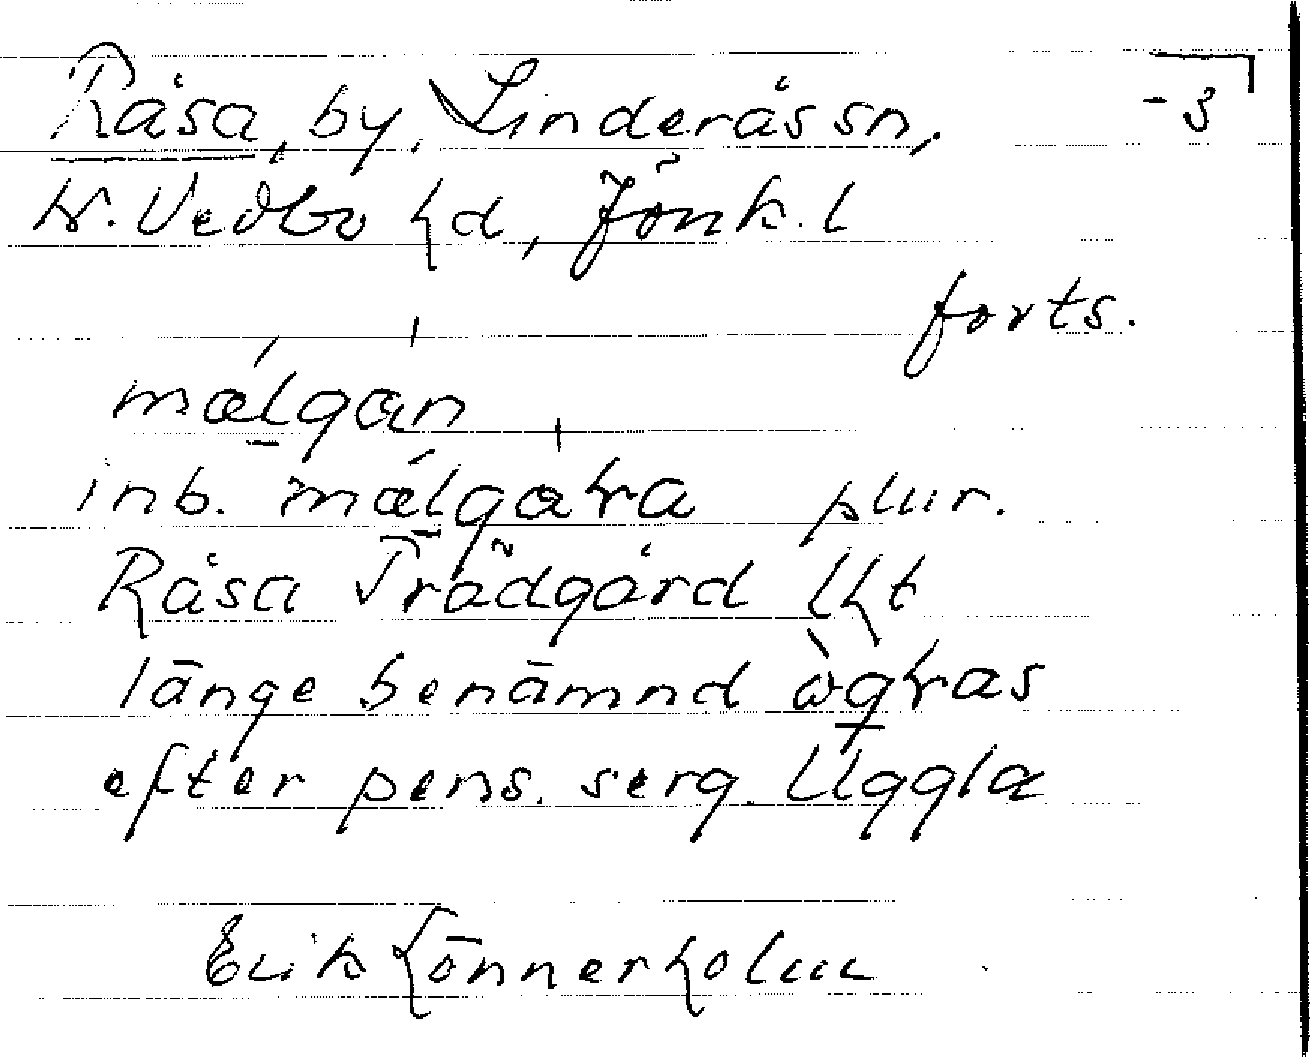 Råsa, by, Linderås sn, -3
N. Vedbo hd, Jönk. l
forts.
málgán
inb. málgakra plur.
Råsa Trädgård
länge benämnd ògkras
efter pens. serg. Uggla
Erik Lönnerholm